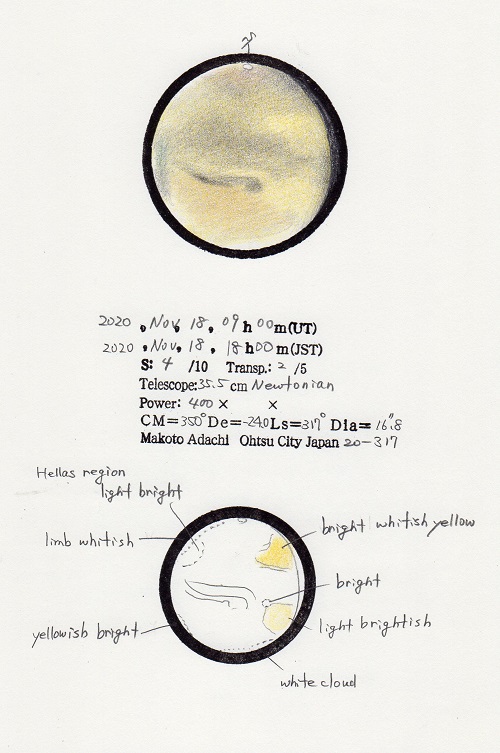 S
2020, Nov, 18, 09h00m(UT)
2020, Nov, 18, 18h00m(JST)
S: 4 /10 Transp.: 2 /5
Telescope: 35.5 cm Newtonian
Power: 400× ×
CM=350° De=-24.0 Ls=317° Dia=16".8
Makoto Adachi Ohtsu City Japan 20-317
Hellas region
light bright
limb whitish
bright whitish yellow
bright
yellowish bright
light brightish
white cloud